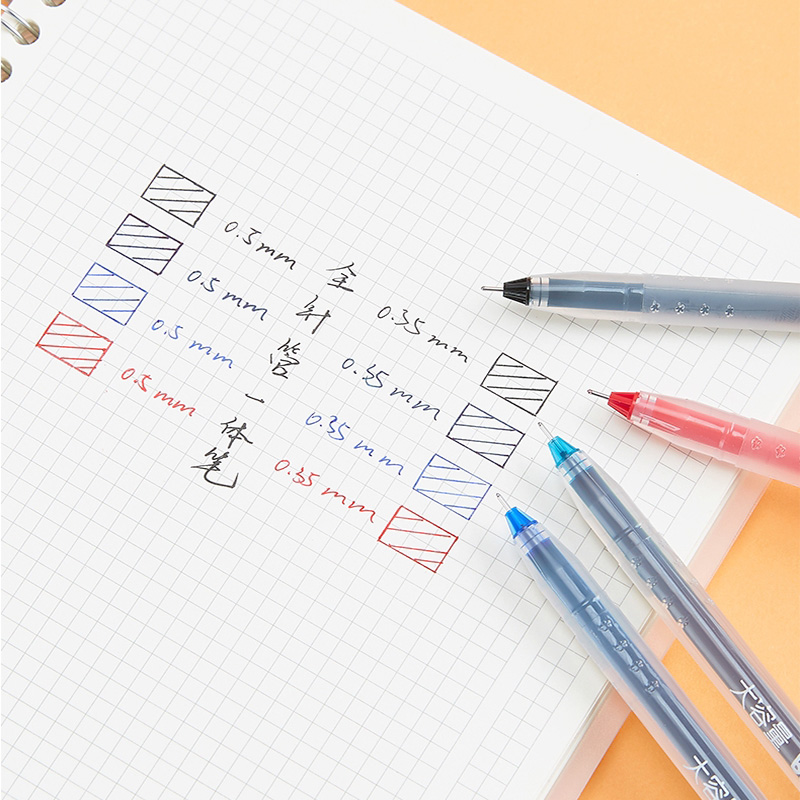 0.5mm
0.5mm
0.5mm
0.5mm
全针管一体笔
0.35mm
0.35mm
0.35mm
0.35mm
大容量
大容量